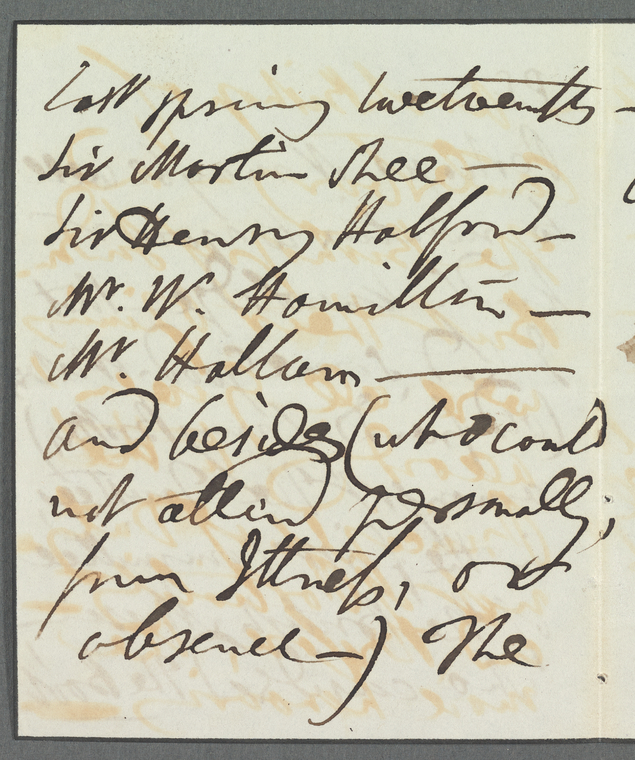 last spring
Sir Martin Shee —
Sir Henry Halford —
Mr. W. Hamilton —
Mr. Hallam —
and besides (who could
not attend personally,
from Illness, or
absence —) The